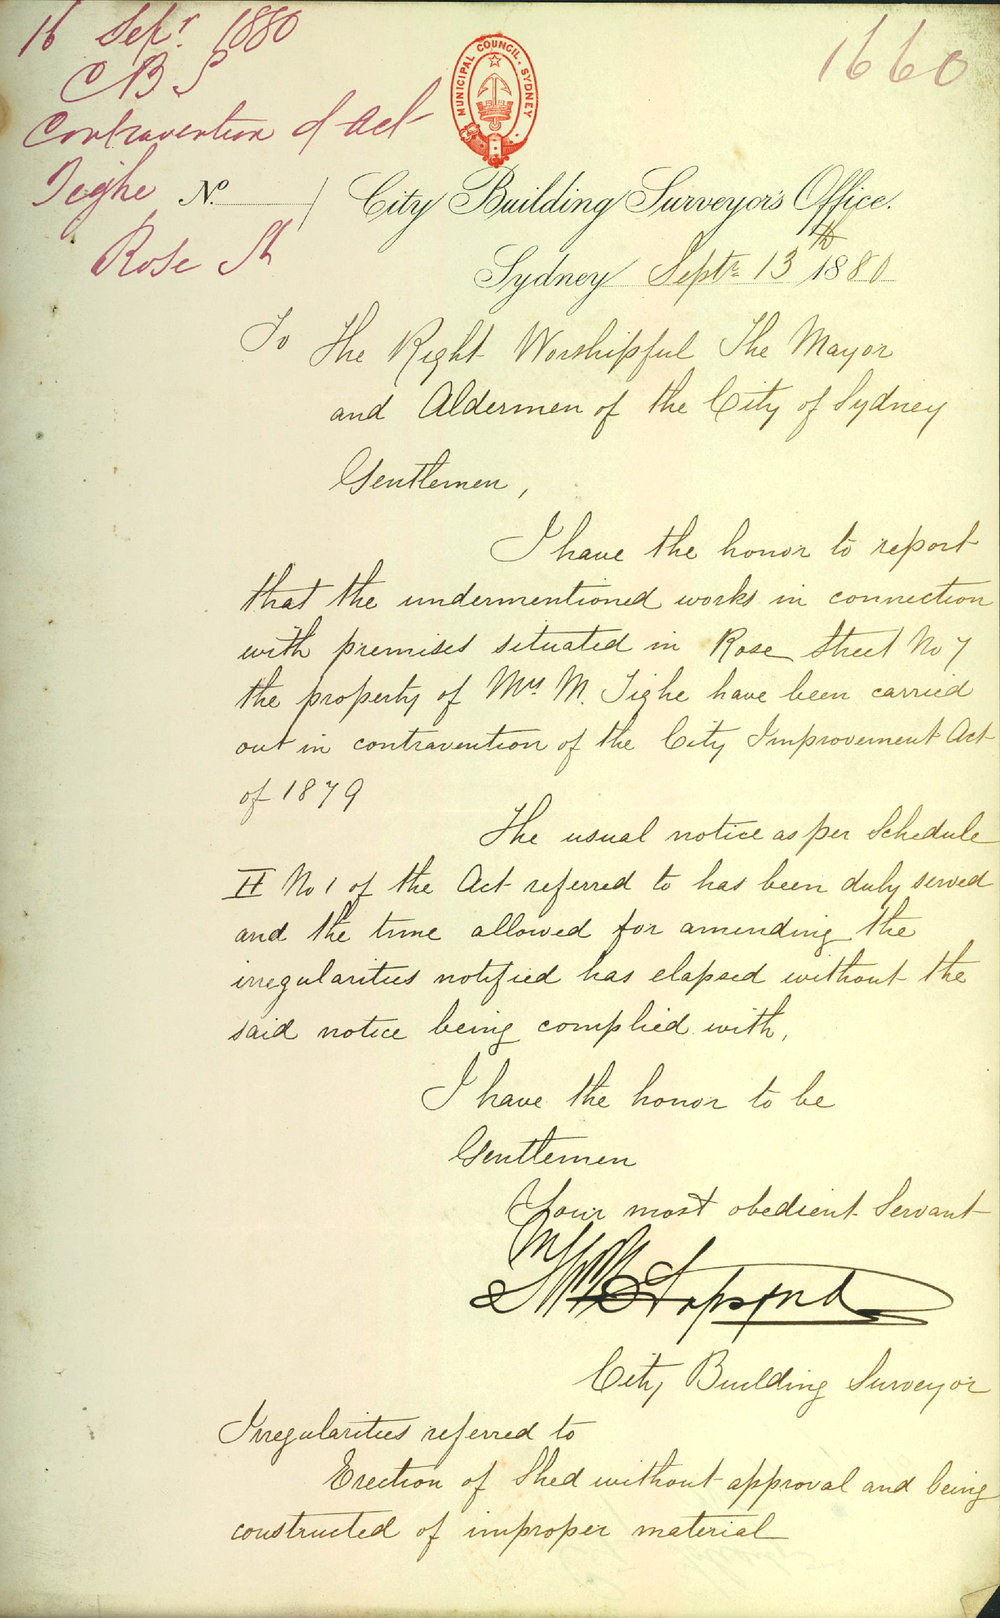 16 Sepr. 1880
CBS
Contravention of Act
Tighe
Rose St
1660
MUNICIPAL COUNCIL. SYDNEY
No.
City Building Surveyor's Office.
Sydney Septr 13th 1880
To The Right Worshipful The Mayor
and Aldermen of the City of Sydney
Gentlemen,
I have the honor to report
that the undermentioned works in connection
with premises situated in Rose Street No 7
the property of Mrs M. Tighe have been carried
out in contravention of the City Improvement Act
of 1879
The usual notice as per Schedule
II No 1 of the Act referred to has been duly served
and the time allowed for amending the
irregularities notified has elapsed without the
said notice being complied with.
I have the honor to be
Gentlemen
Your most obedient Servant
City Building Surveyor
Irregularities referred to
Erection of Shed without approval and being
constructed of improper material